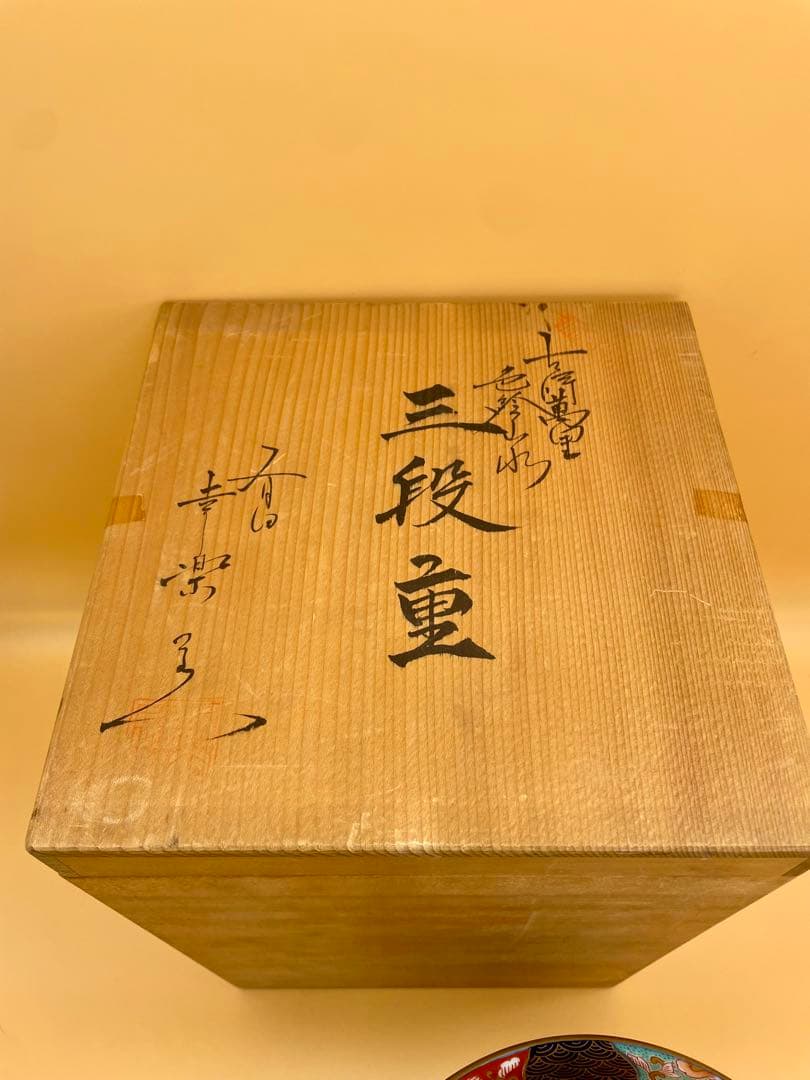 古伊萬里
色絵山水
三段重
有田
幸楽